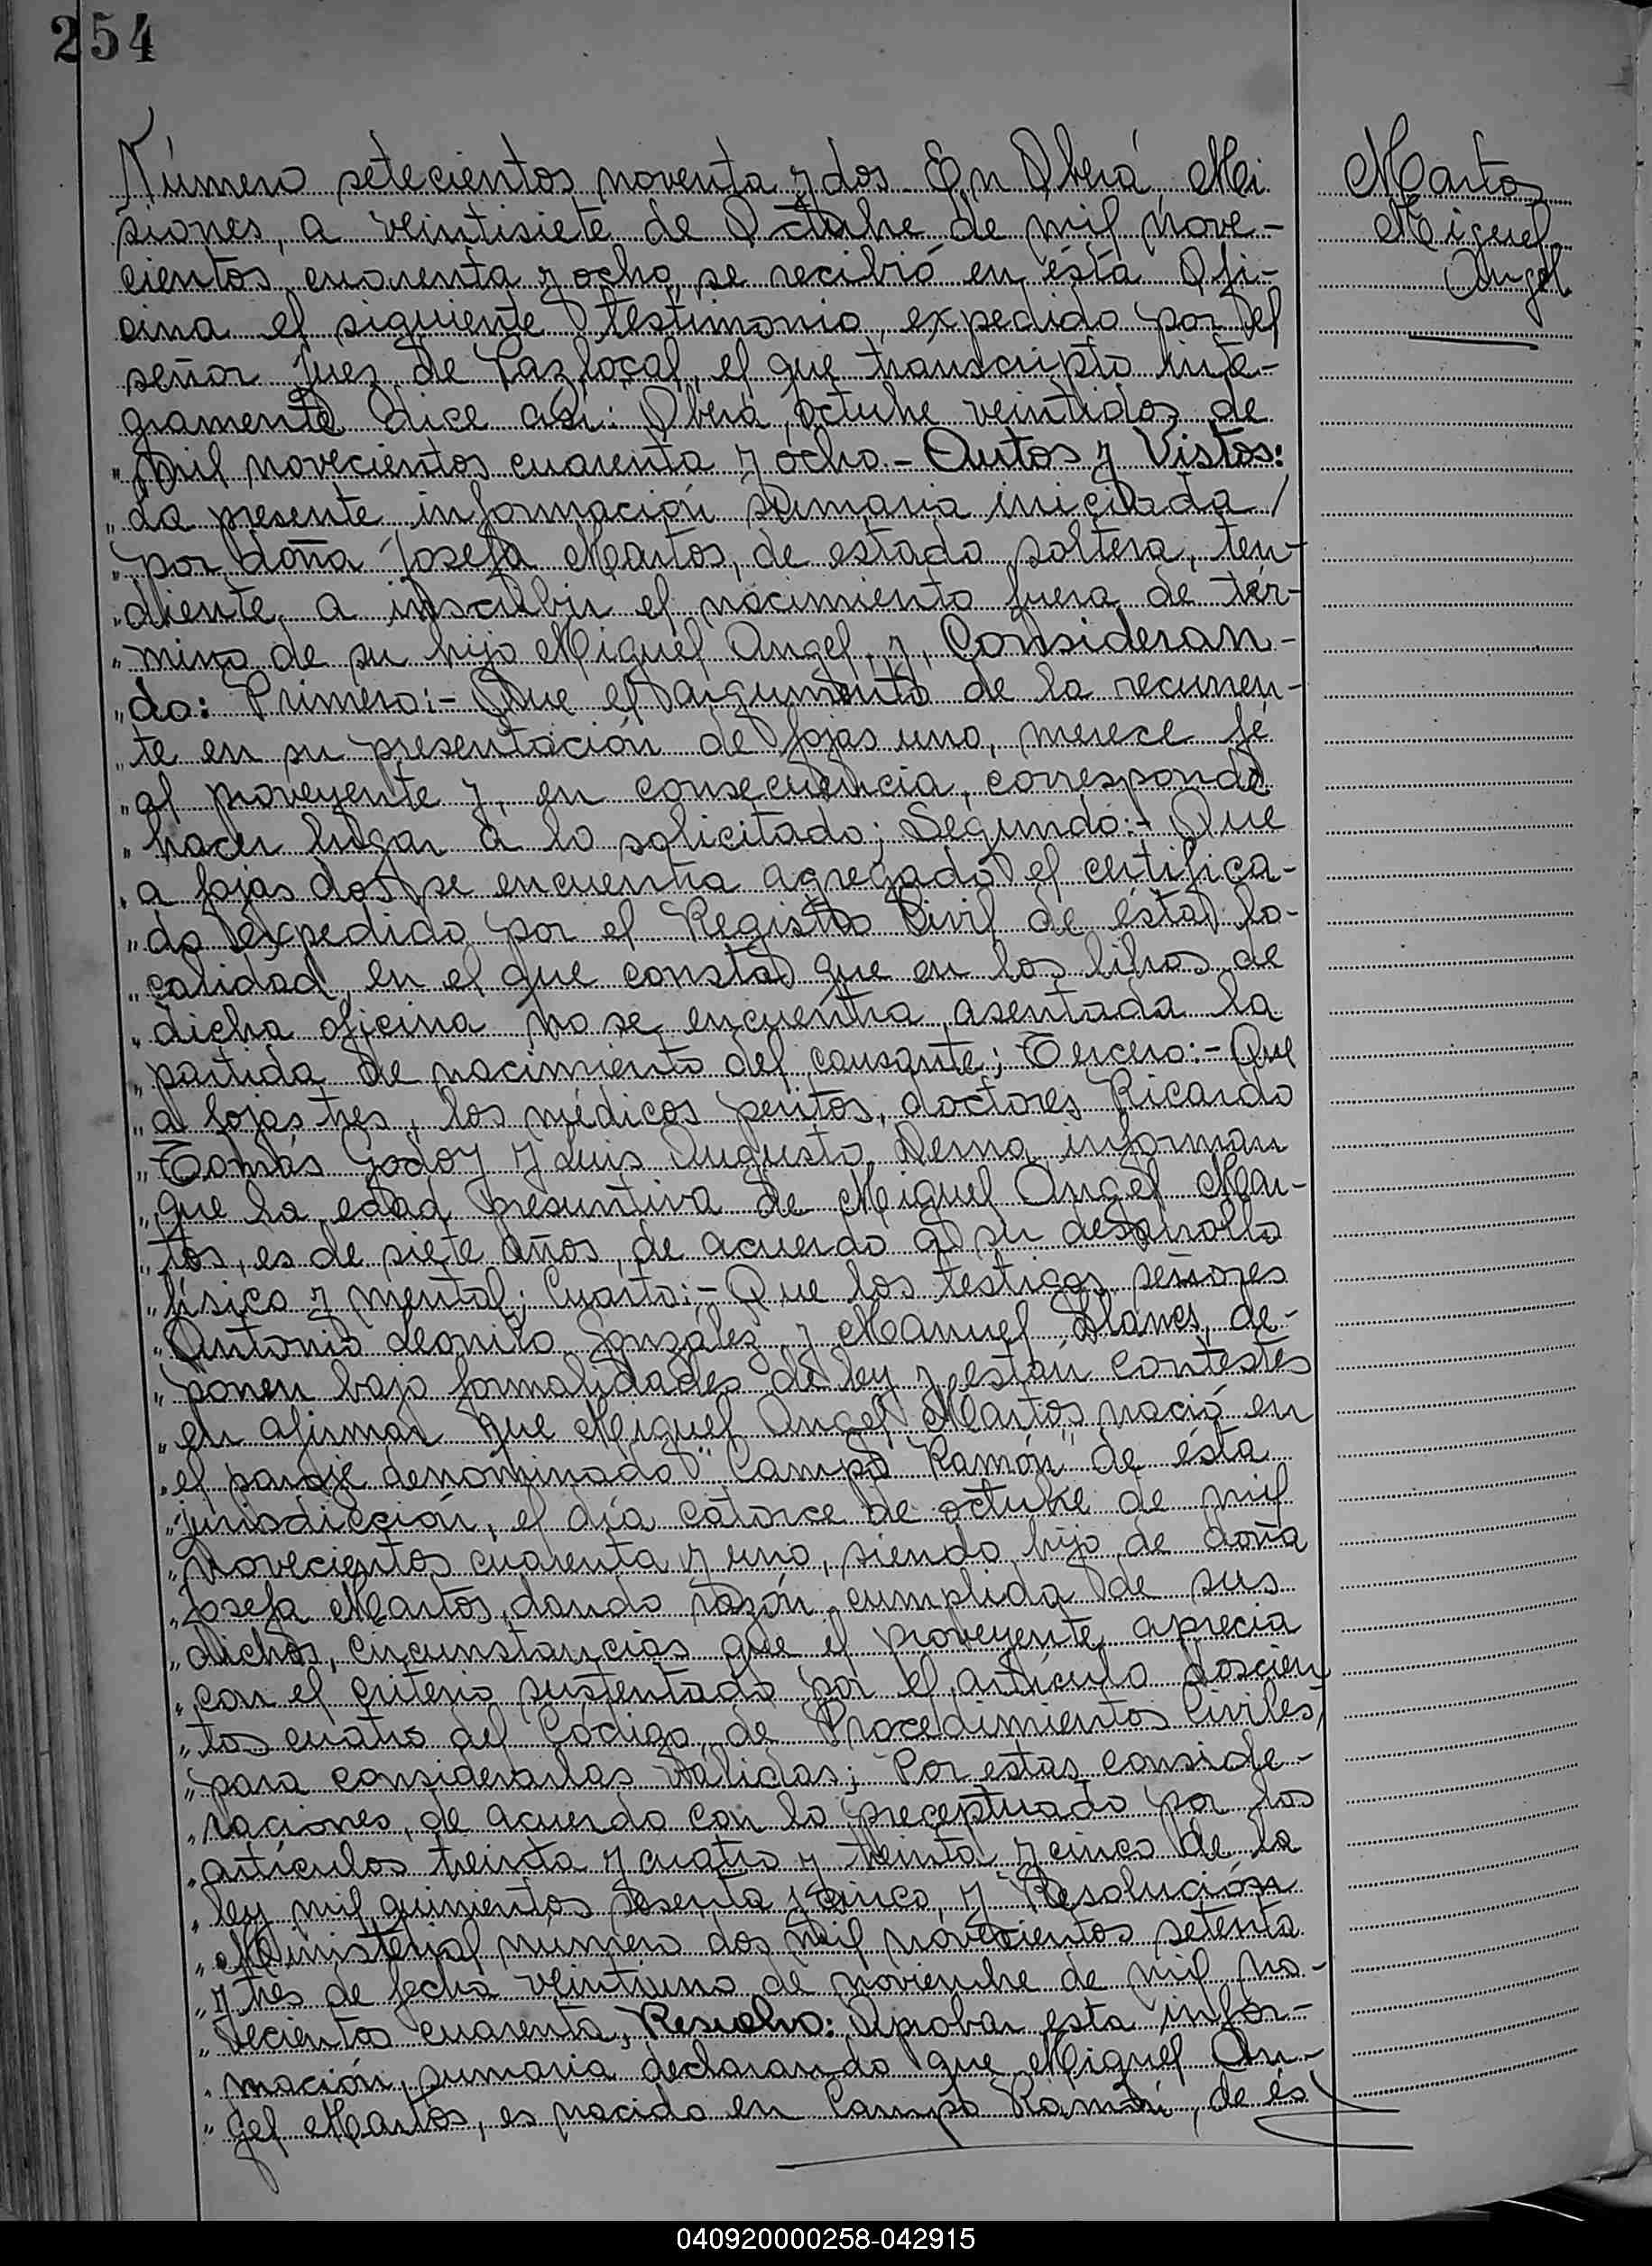 254
Número setecientos noventa y dos. En Oberá Mi
siones, a veintisiete de Octubre de mil nove-
cientos cuarenta y ocho, se recibió en ésta Ofi-
cina el siguiente testimonio, expedido por el
señor Juez de Paz local, el que transcripto ínte-
gramente dice así: Oberá, octubre veintidos de
" mil novecientos cuarenta y ocho.- Autos y Vistos:
" La presente información sumaria iniciada /
" por doña Josefa Martos, de estado soltera, ten-
" diente a inscribir el nacimiento fuera de tér-
" mino de su hijo Miguel Angel, y, Consideran-
" do: Primero:- Que el argumento de la recurren-
" te en su presentación de fojas uno, merece fé
" al proveyente y, en consecuencia, corresponde
" hacer lugar a lo solicitado; Segundo:- Que
" a fojas dos se encuentra agregado el certifica-
" do expedido por el Registro Civil de ésta lo-
" calidad, en el que consta que en los libros de
" dicha oficina no se encuentra asentada la
" partida de nacimiento del causante; Tercero:- Que
" a fojas tres, los médicos peritos, doctores Ricardo
" Tomás Godoy y Luis Augusto Derna informan
" que la edad presuntiva de Miguel Angel Mar-
" tos, es de siete años, de acuerdo a su desarrollo
" físico y mental; Cuarto:- Que los testigos señores
" Antonio Leonilo González y Manuel Llanes, de-
" ponen bajo formalidades de ley y están contestes
" en afirmar que Miguel Angel Martos, nació en
" el paraje denominado "Campo Ramón" de ésta
" jurisdicción, el día catorce de octubre de mil
" novecientos cuarenta y uno, siendo hijo de doña
" Josefa Martos, dando razón cumplida de sus
" dichos, circunstancias que el proveyente aprecia
" con el criterio sustentado por el artículo doscien
" tos cuatro del Código de Procedimientos Civiles,
" para considerarlas válidas; Por estas conside-
" raciones, de acuerdo con lo preceptuado por los
" artículos treinta y cuatro y treinta y cinco de la
" ley mil quinientos sesenta y cinco, y Resolución
" Ministerial numero dos mil novecientos setenta
" y tres de fecha veintiuno de noviembre de mil no-
" vecientos cuarenta, Resuelvo: Aprobar esta infor-
" mación sumaria declarando que Miguel An-
" gel Martos, es nacido en Campo Ramón, de és
Martos
Miguel
Angel
040920000258-042915